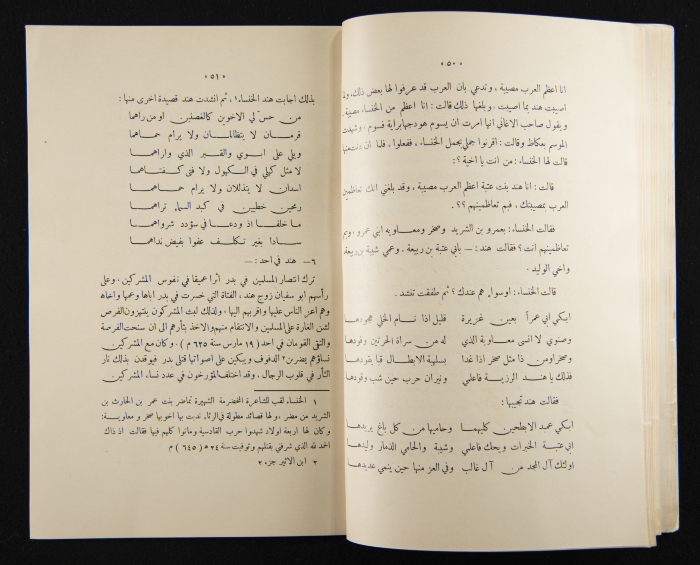 ٥٠
انا اعظم العرب مصيبة ، وتدعي بأن العرب قد عرفوا لها بعض ذلك ،
اصيبت هند بما اصيبت . وبلغها ذلك قالت : انا اعظم من الخنساء مصيبة ،
ويقول صاحب الاغاني انها امرت ان يسوم هودجها براية فسوم ، وشهدت
الموسم بعكاظ وقالت : اقرنوا جملي بجمل الخنساء ، ففعلوا ، فلما ان دنت منها
قالت لها الخنساء : من انت يا اخية ؟ :
قالت : انا هند بنت عتبة اعظم العرب مصيبة ، وقد بلغني انك تعاظمين
العرب بمصيبتك ، فبم تعاظمينهم ؟؟ .
فقالت الخنساء : بعمرو بن الشريد وصخر ومعاويه ابني عمرو ، وبم
تعاظمينهم انت ؟ فقالت هند : — بأبي عتبة بن ربيعة ، وعمي شيبة بن ربيعة ،
واخي الوليد .
قالت الخنساء : اوسواء هم عندك ؟ ثم طفقت تنشد .
ابكي ابي عمراً بعين غزيرة قليل اذا نام الخلي هجودها
وصنوي لا انسى معاوية الذي له من سراة الحرتين وفودها
وصخراً ومن ذا مثل صخر اذا غدا بسلهبة الابطال قبا يقودها
فذلك يا هند الرزية فاعلمي ونيران حرب حين شب وقودها
فقالت هند تجيبها :
ابكي عميد الابطحين كليهما وحاميها من كل باغ يريدها
ابي عتبة الخيرات ويحك فاعلمي وشيبة والحامي الذمار وليدها
اولئك آل المجد من آل غالب وفي العز منها حين ينمي عديدها
٥١
بذلك اجابت هند الخنساء ١ ، ثم انشدت هند قصيدة اخرى منها :
من حس لي الاخوين كالغصنين او من راهما
قرمان لا يتظالمان ولا يرام حماهما
ويلي على ابوي والقبر الذي واراهما
لا مثل كهلي في الكهول ولا فتى كفتاهما
اسدان لا يتذللان ولا يرام حماهما
رمحين خطيين في كبد السماء تراهما
ما خلفا اذ ودعا في سؤدد شرواهما
سادا بغير تكلف عفوا بفيض نداهما
٦ — هند في احد : —
ترك انتصار المسلمين في بدر أثرا عميقا في نفوس المشركين . وعلى
رأسهم ابو سفيان زوج هند ، الفتاة التي خسرت في بدر اباها وعمها واخاه
وهم اعز الناس عليها واقربهم اليها ، ولذلك لبث المشركون ينتهزون الفرص
لشن الغارة على المسلمين والانتقام منهم والاخذ بثأرهم الى ان سنحت الفرصة
والتقى القومان في احد ( ١٩ مارس سنة ٦٢٥ م ) . وكان مع المشركين
نساؤهم يضربن ٢ الدفوف ويبكين على اصواتها قتلى بدر فيوقدن بذلك نار
الثأر في قلوب الرجال . وقد اختلف المؤرخون في عدد نساء المشركين
١ الخنساء لقب للشاعرة المخضرمة الشهيرة تماضر بنت عمر بن الحارث بن
الشريد من مضر . ولها قصائد مطولة في الرثاء ندبت بها اخويها صخر و معاوية :
وكان لها اربعة اولاد شهدوا حرب القادسية وماتوا كلهم فيها فقالت اذ ذاك
الحمد لله الذي شرفني بقتلهم وتوفيت سنة ٢٤ ه ( ٦٤٥ ) م
٢ ابن الاثير جزء ٢